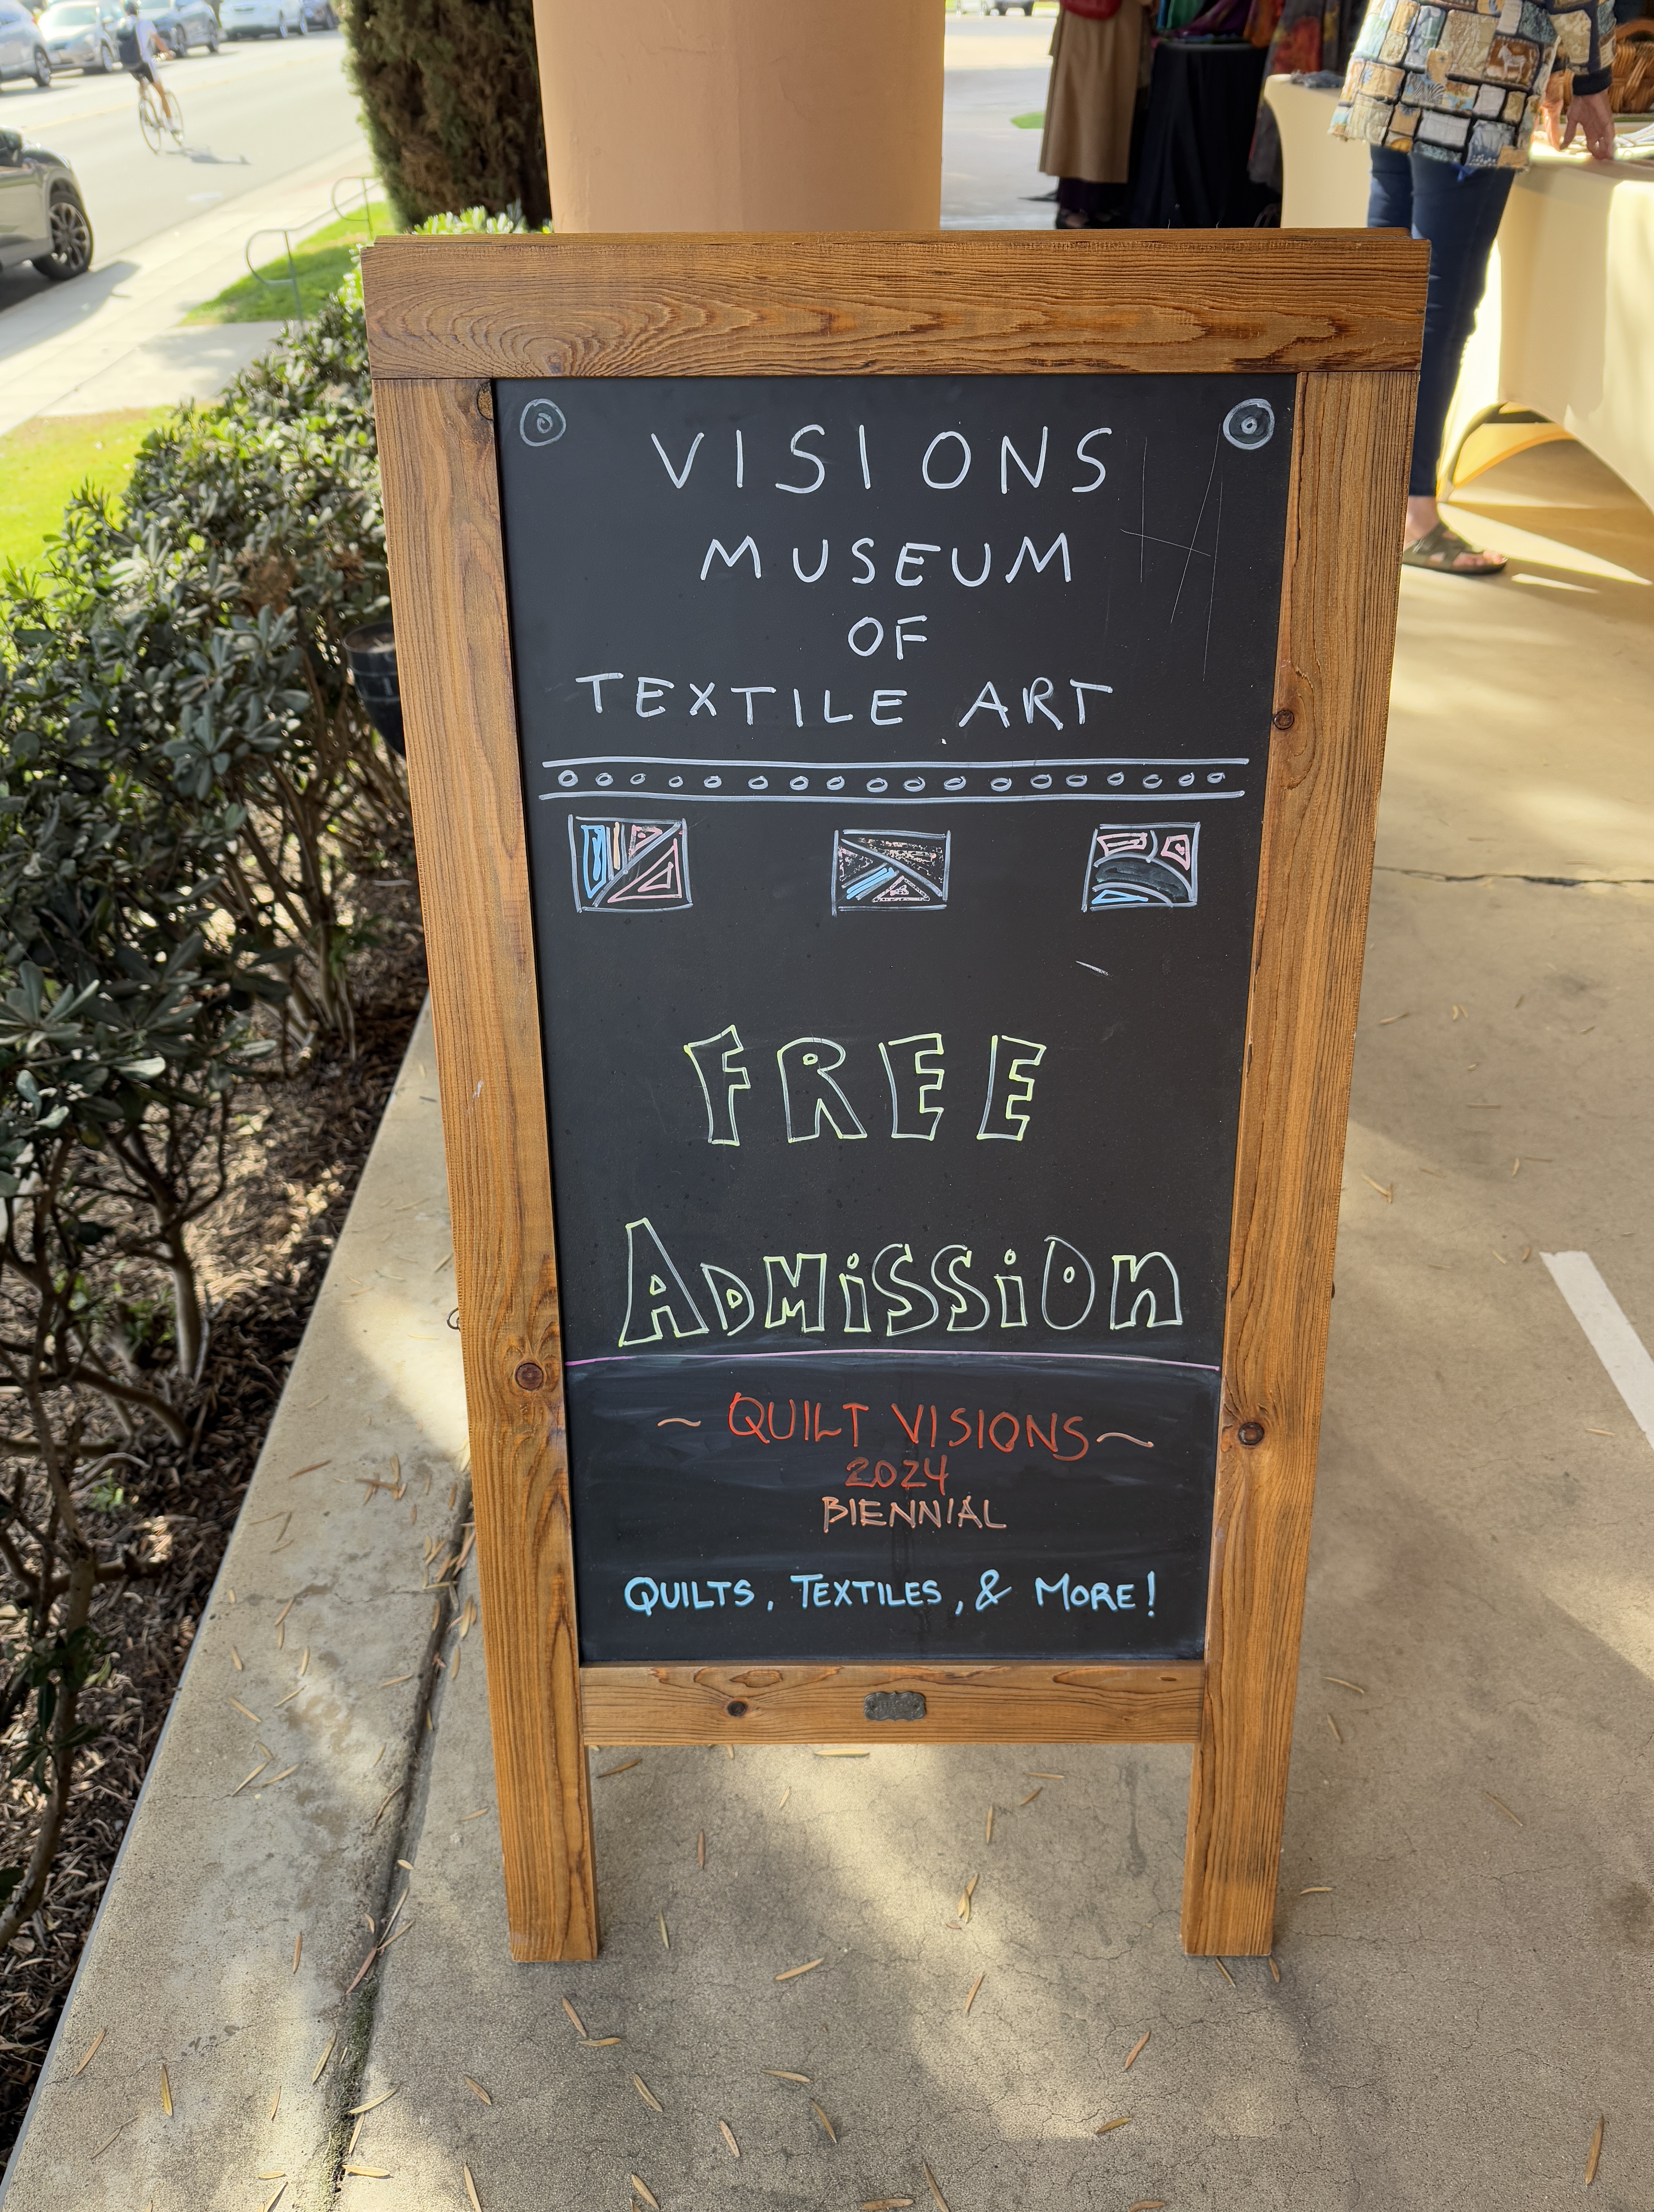 VISIONS
MUSEUM
OF
TEXTILE ART
FREE
ADMiSSiOn
~ QUILT VISIONS ~
2024
BIENNIAL
QUILTS, TEXTILES, & MORE!